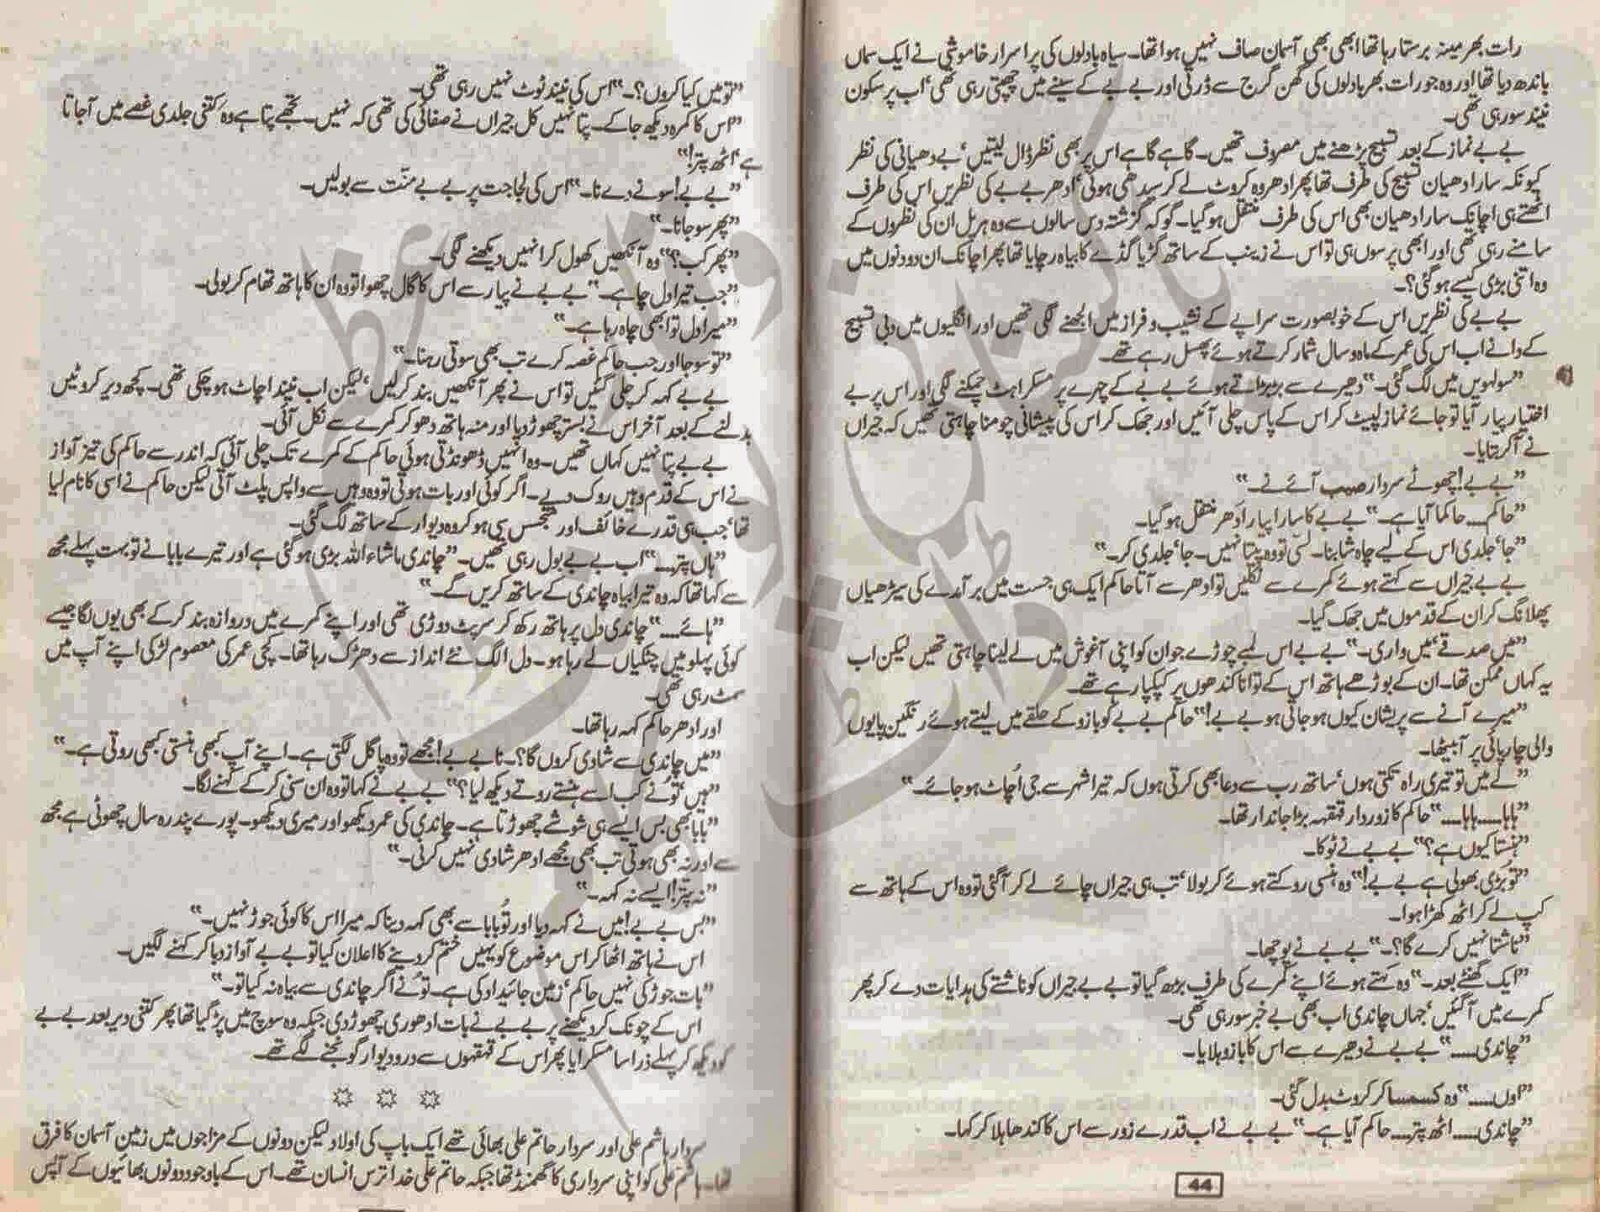 رات بھر مینہ برستا رہا تھا ابھی بھی آسمان صاف نہیں ہوا تھا۔ سیاہ بادلوں کی پراسرار خاموشی نے ایک سماں
باندھ دیا تھا اور وہ جو رات بھر بادلوں کی گھن گرج سے ڈرتی اور بے بے کے سینے میں چھپتی رہی تھی‘ اب پرسکون
نیند سو رہی تھی۔
بے بے نماز کے بعد تسبیح پڑھنے میں مصروف تھیں۔ گاہے گاہے اس پر بھی نظر ڈال لیتیں‘ بے دھیانی کی نظر
کیونکہ سارا دھیان تسبیح کی طرف تھا پھر ادھر وہ کروٹ لے کر سیدھی ہوئی‘ ادھر بے بے کی نظریں اس کی طرف
اٹھتے ہی اچانک سارا دھیان بھی اس کی طرف منتقل ہو گیا۔ گو کہ گزشتہ دس سالوں سے وہ ہر پل ان کی نظروں کے
سامنے رہی تھی اور ابھی پرسوں ہی تو اس نے زینب کے ساتھ گڑیا گڈے کا بیاہ رچایا تھا پھر اچانک ان دو دنوں میں
وہ اتنی بڑی کیسے ہو گئی؟۔
بے بے کی نظریں اس کے خوبصورت سراپے کے نشیب و فراز میں الجھنے لگی تھیں اور انگلیوں میں دبی تسبیح
کے دانے اب اس کی عمر کے ماہ و سال شمار کرتے ہوئے پھسل رہے تھے۔
”سولہویں میں لگ گئی۔“ دھیرے سے بڑبڑاتے ہوئے بے بے کے چہرے پر مسکراہٹ چمکنے لگی اور اس پر بے
اختیار پیار آیا تو جائے نماز لپیٹ کر اس کے پاس چلی آئیں اور جھک کر اس کی پیشانی چومنا چاہتی تھیں کہ جیراں
نے آ کر بتایا۔
”بے بے! چھوٹے سردار صیب آئے نے۔“
”حاکم.... حاکما آیا ہے۔“ بے بے کا سارا پیار ادھر منتقل ہو گیا۔
”جا‘ جلدی اس کے لیے چاہ شا بنا۔ لسّی تو وہ پیتا نہیں۔ جا‘ جلدی کر۔“
بے بے جیراں سے کہتے ہوئے کمرے سے نکلیں تو ادھر سے آتا حاکم ایک ہی جست میں برآمدے کی سیڑھیاں
پھلانگ کر ان کے قدموں میں جھک گیا۔
”میں صدقے‘ میں واری۔“ بے بے اس لمبے چوڑے جوان کو اپنی آغوش میں لے لینا چاہتی تھیں لیکن اب
یہ کہاں ممکن تھا۔ ان کے بوڑھے ہاتھ اس کے توانا کندھوں پر کپکپا رہے تھے۔
”میرے آنے سے پریشان کیوں ہو جاتی ہو بے بے!“ حاکم بے بے کو بازو کے حلقے میں لیتے ہوئے رنگین پایوں
والی چارپائی پر آ بیٹھا۔
”لے میں تو تیری راہ تکتی ہوں‘ ساتھ رب سے دعا بھی کرتی ہوں کہ تیرا شہر سے جی اُچاٹ ہو جائے۔“
”ہاہا..... ہاہا....“ حاکم کا زوردار قہقہہ بڑا جاندار تھا۔
”ہنستا کیوں ہے؟“ بے بے نے ٹوکا۔
”تُو بڑی بھولی ہے بے بے!“ وہ ہنسی روکتے ہوئے کر بولا‘ تب ہی جیراں چائے لے کر آ گئی تو وہ اس کے ہاتھ سے
کپ لے کر اٹھ کھڑا ہوا۔
”ناشتا نہیں کرے گا؟۔“ بے بے نے پوچھا۔
”ایک گھنٹے بعد۔“ وہ کہتے ہوئے اپنے کمرے کی طرف بڑھ گیا تو بے بے جیراں کو ناشتے کی ہدایات دے کر پھر
کمرے میں آ گئیں‘ جہاں چاندی اب بھی بے خبر سو رہی تھی۔
”چاندی.....“ بے بے نے دھیرے سے اس کا بازو ہلایا۔
”اوں.....“ وہ کسمسا کر کروٹ بدل گئی۔
”چاندی..... اٹھ پتر.... حاکم آیا ہے۔“ بے بے نے اب قدرے زور سے اس کا کندھا ہلا کر کہا۔
44
”تو میں کیا کروں؟۔“ اس کی نیند ٹوٹ نہیں رہی تھی۔
”اس کا کمرہ دیکھ جا کے۔ پتا نہیں کل جیراں نے صفائی کی تھی کہ نہیں۔ تجھے پتا ہے وہ کتنی جلدی غصے میں آ جاتا
ہے‘ اٹھ پتر!“
”بے بے! سونے دے نا۔“ اس کی لجاجت پر بے بے منّت سے بولیں۔
”پھر سو جانا۔“
”پھر کب؟“ وہ آنکھیں کھول کر انہیں دیکھنے لگی۔
”جب تیرا دل چاہے۔“ بے بے نے پیار سے اس کا گال چھوا تو وہ ان کا ہاتھ تھام کر بولی۔
”میرا دل تو ابھی چاہ رہا ہے۔“
”تو سو جا اور جب حاکم غصہ کرے تب بھی سوتی رہنا۔“
بے بے کہہ کر چلی گئیں تو اس نے پھر آنکھیں بند کر لیں‘ لیکن اب نیند اچاٹ ہو چکی تھی۔ کچھ دیر کروٹیں
بدلنے کے بعد آخر اس نے بستر چھوڑ دیا اور منہ ہاتھ دھو کر کمرے سے نکل آئی۔
بے بے پتا نہیں کہاں تھیں۔ وہ انہیں ڈھونڈتی ہوئی حاکم کے کمرے تک چلی آئی کہ اندر سے حاکم کی تیز آواز
نے اس کے قدم وہیں روک دیے۔ اگر کوئی اور بات ہوتی تو وہ وہیں سے واپس پلٹ آتی لیکن حاکم نے اسی کا نام لیا
تھا‘ جب ہی قدرے خائف اور متجسس سی ہو کر وہ دیوار کے ساتھ لگ گئی۔
”ہاں پتر....“ اب بے بے بول رہی تھیں۔ ”چاندی ماشاء اللہ بڑی ہو گئی ہے اور تیرے بابا نے تو بہت پہلے مجھ
سے کہا تھا کہ وہ تیرا بیاہ چاندی کے ساتھ کریں گے۔“
”ہائے....“ چاندی دل پر ہاتھ رکھ کر سرپٹ دوڑی تھی اور اپنے کمرے میں دروازہ بند کر کے بھی یوں لگا جیسے
کوئی پہلو میں چٹکیاں لے رہا ہو۔ دل الگ نئے انداز سے دھڑک رہا تھا۔ کچی عمر کی معصوم لڑکی اپنے آپ میں
سمٹ رہی تھی۔
اور ادھر حاکم کہہ رہا تھا۔
”میں چاندی سے شادی کروں گا؟۔ نا بے بے! مجھے تو وہ پاگل لگتی ہے۔ اپنے آپ کبھی ہنستی کبھی روتی ہے۔“
”ہیں‘ تُو نے کب اسے ہنستے روتے دیکھ لیا؟“ بے بے نے کہا تو وہ ان سنی کر کے کہنے لگا۔
”بابا بھی بس ایسے ہی شوشے چھوڑتا ہے۔ چاندی کی عمر دیکھو اور میری دیکھو۔ پورے پندرہ سال چھوٹی ہے مجھ
سے اور نہ بھی ہوتی تب بھی مجھے ادھر شادی نہیں کرنی۔“
”نہ پتر! ایسے نہ کہہ۔“
”بس بے بے! میں نے کہہ دیا اور تُو بابا سے بھی کہہ دینا کہ میرا اس کا کوئی جوڑ نہیں۔“
اس نے ہاتھ اٹھا کر اس موضوع کو یہیں ختم کر دینے کا اعلان کیا تو بے بے آواز دبا کر کہنے لگیں۔
”بات جوڑ کی نہیں حاکم‘ زمین جائیداد کی ہے۔ تُو نے اگر چاندی سے بیاہ نہ کیا تو۔“
اس کے چونک کر دیکھنے پر بے بے نے بات ادھوری چھوڑ دی جبکہ وہ سوچ میں پڑ گیا تھا پھر کتنی دیر بعد بے بے
کو دیکھ کر پہلے ذرا سا مسکرایا پھر اس کے قہقہوں سے در و دیوار گونجنے لگے تھے۔
سردار ہاشم علی اور سردار حاتم علی بھائی تھے ایک باپ کی اولاد لیکن دونوں کے مزاجوں میں زمین آسمان کا فرق
تھا۔ ہاشم علی کو اپنی سرداری کا گھمنڈ تھا جبکہ حاتم علی خدا ترس انسان تھے۔ اس کے باوجود دونوں بھائیوں کے آپس